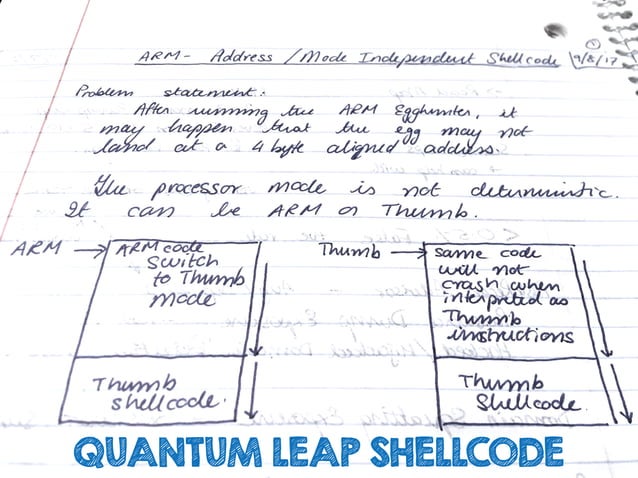 ARM - Address / Mode Independent Shellcode
① 19/8/17
Problem statement:
After running the ARM Egghunter, it
may happen that the egg may not
land at a 4 byte aligned address.
The processor mode is not deterministic.
It can be ARM or Thumb.
ARM
ARM code
Switch
to Thumb
mode
Thumb
shellcode.
Thumb
same code
will not
crash when
interpreted as
Thumb
instructions
Thumb
Shellcode.
QUANTUM LEAP SHELLCODE